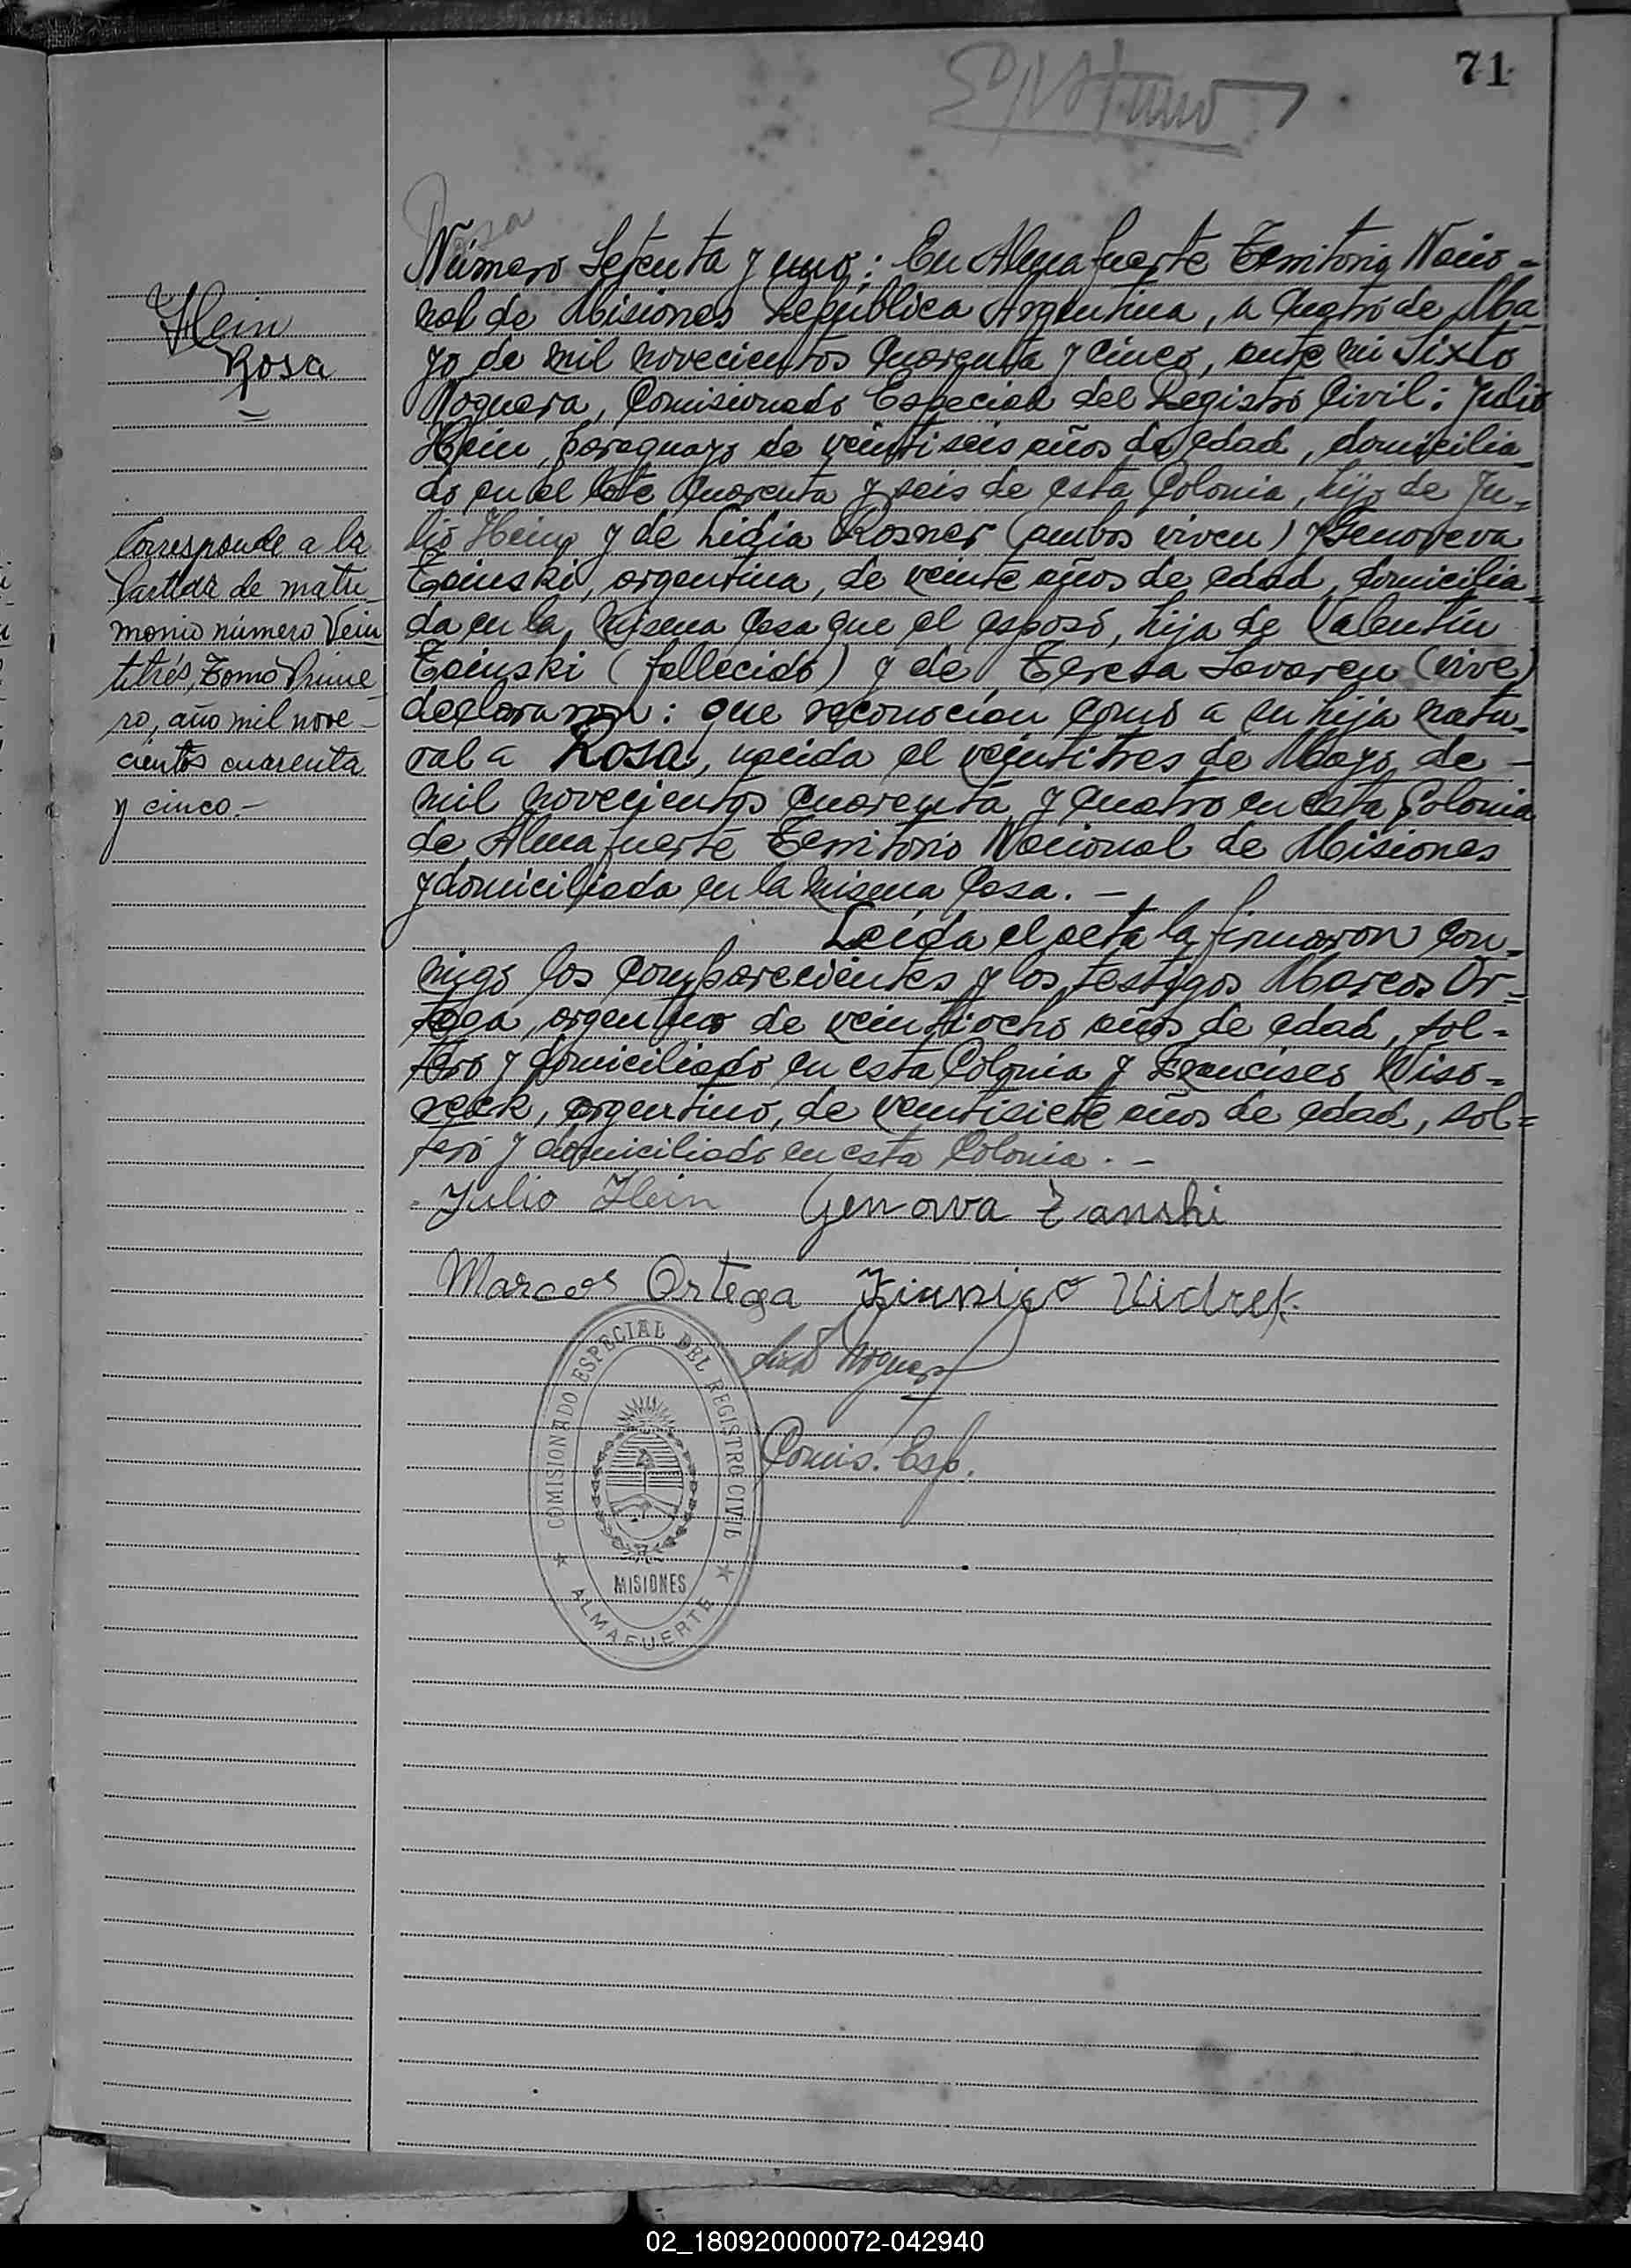 71
Rosa
Hein
Rosa
Corresponde a la
Partida de matri
monio número Vein
titrés, Tomo Prime
ro, año mil nove-
cientos cuarenta
y cinco.-
Número Setenta y uno: En Almafuerte Territorio Nacio-
nal de Misiones República Argentina, a cuatro de Ma
yo de mil novecientos cuarenta y cinco, ante mi Sixto
Noguera, Comisionado Especial del Registro Civil: Julio
Hein, paraguayo de veintiseis años de edad, domicilia
do en el lote cuarenta y seis de esta Colonia, hijo de Ju-
lio Hein y de Lidia Rosner (ambos viven) y Genoveva
argentina, de veinte años de edad, domicilia
da en la misma casa que el esposo, hija de Valentín
(fallecido) y de Teresa (vive)
declararon: que reconocían como a su hija natu-
ral a Rosa, nacida el veintitres de Mayo de -
mil novecientos cuarenta y cuatro en esta Colonia
de Almafuerte Territorio Nacional de Misiones
y domiciliada en la misma casa. -
Leída el acta la firmaron con-
migo los comparecientes y los testigos Marcos Or-
tega, argentino de veintiocho años de edad, sol-
tero y domiciliado en esta Colonia y Francisco
argentino, de veintisiete años de edad, sol-
tero y domiciliado en esta Colonia. -
Julio Hein Genowa Zanski
Marcos Ortega
Sixto Noguera
Comis. Esp.
COMISIONADO ESPECIAL DEL REGISTRO CIVIL
MISIONES
ALMAFUERTE
02_180920000072-042940